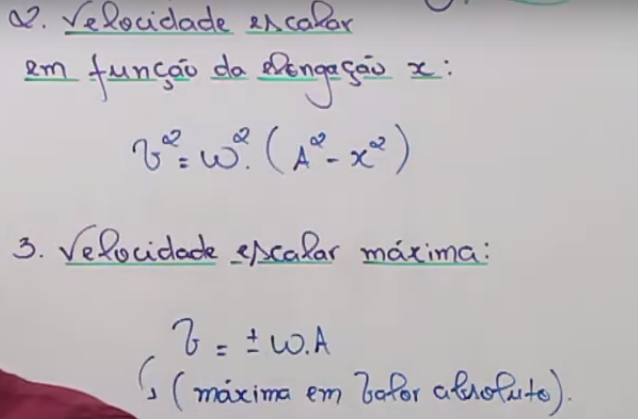 2. Velocidade escalar
em função da elongação x:
v² = ω².(A² - x²)
3. Velocidade escalar máxima:
v = ± ω.A
↳ (máxima em valor absoluto).